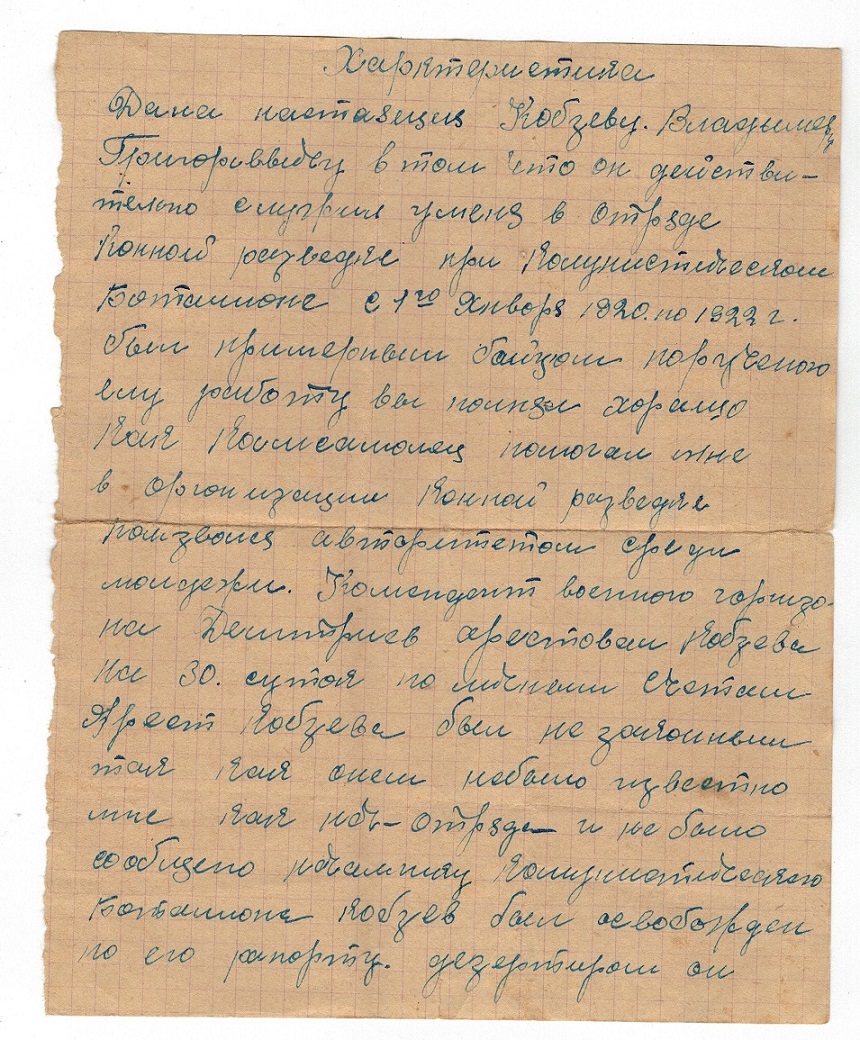 Харктеристика
Дана настаящия Кобзеву. Владимеру
Григорьевичу в том что он действи-
тельно служил уменя в отряде
Конной разведке при Комунистическом
Боталионе с 1го Января 1920. по 1922 г.
был примерным бойцом порученою
ему работу вы полнял хорашо
как Комсамолец помогал мне
в организации конной разведке
ползвался авторитетом среди
молодежи. Комендант военного горнизо-
на Дмитриев арестовал Кобзева
на 30. суток по личным счетам
Арест Кобзева был не законным
так как онем небыло известно
мне как нач-отряда и не было
сообщено начальнику Комунистического
Боталиона Кобзев был освобожден
по его рапорту. дезертиром он